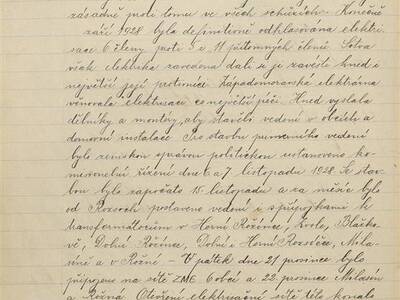 zásadně proti tomu ve všech schůzích. Konečně
září 1928 byla definitivně odhlasována elektri-
sace 6 členy proti 5 i 11 přítomných členů. Sotva
však elektrika zavedena dali si je zavésti hned i
největší její protivníci. Západomoravská elektrárna
věnovala elektrisaci co největší péči. Hned vyslala
dělníky a montéry, aby stavěli vedení v obcích a
domovní instalace. Pro stavbu primerního vedení
bylo zemskou správou politickou ustanoveno ko-
misionelní řízení dne 6 a 7. listopadu 1928. Se stav-
bou bylo započato 15. listopadu a za měsíc bylo
od Rozsoch postaveno vedení i s přípojkami k
transformátorům v Horní Rožínce, Zvole, Blažko-
vě, Dolní Rožínce, Dolní i Horní Rozsíčce, Mila-
síně a v Rožné – V pátek dne 21 prosince bylo
připojeno na sítě ZME 6 obcí a 22. prosince Milasín
a Rožná. Otevření elektrisační sítě této konalo